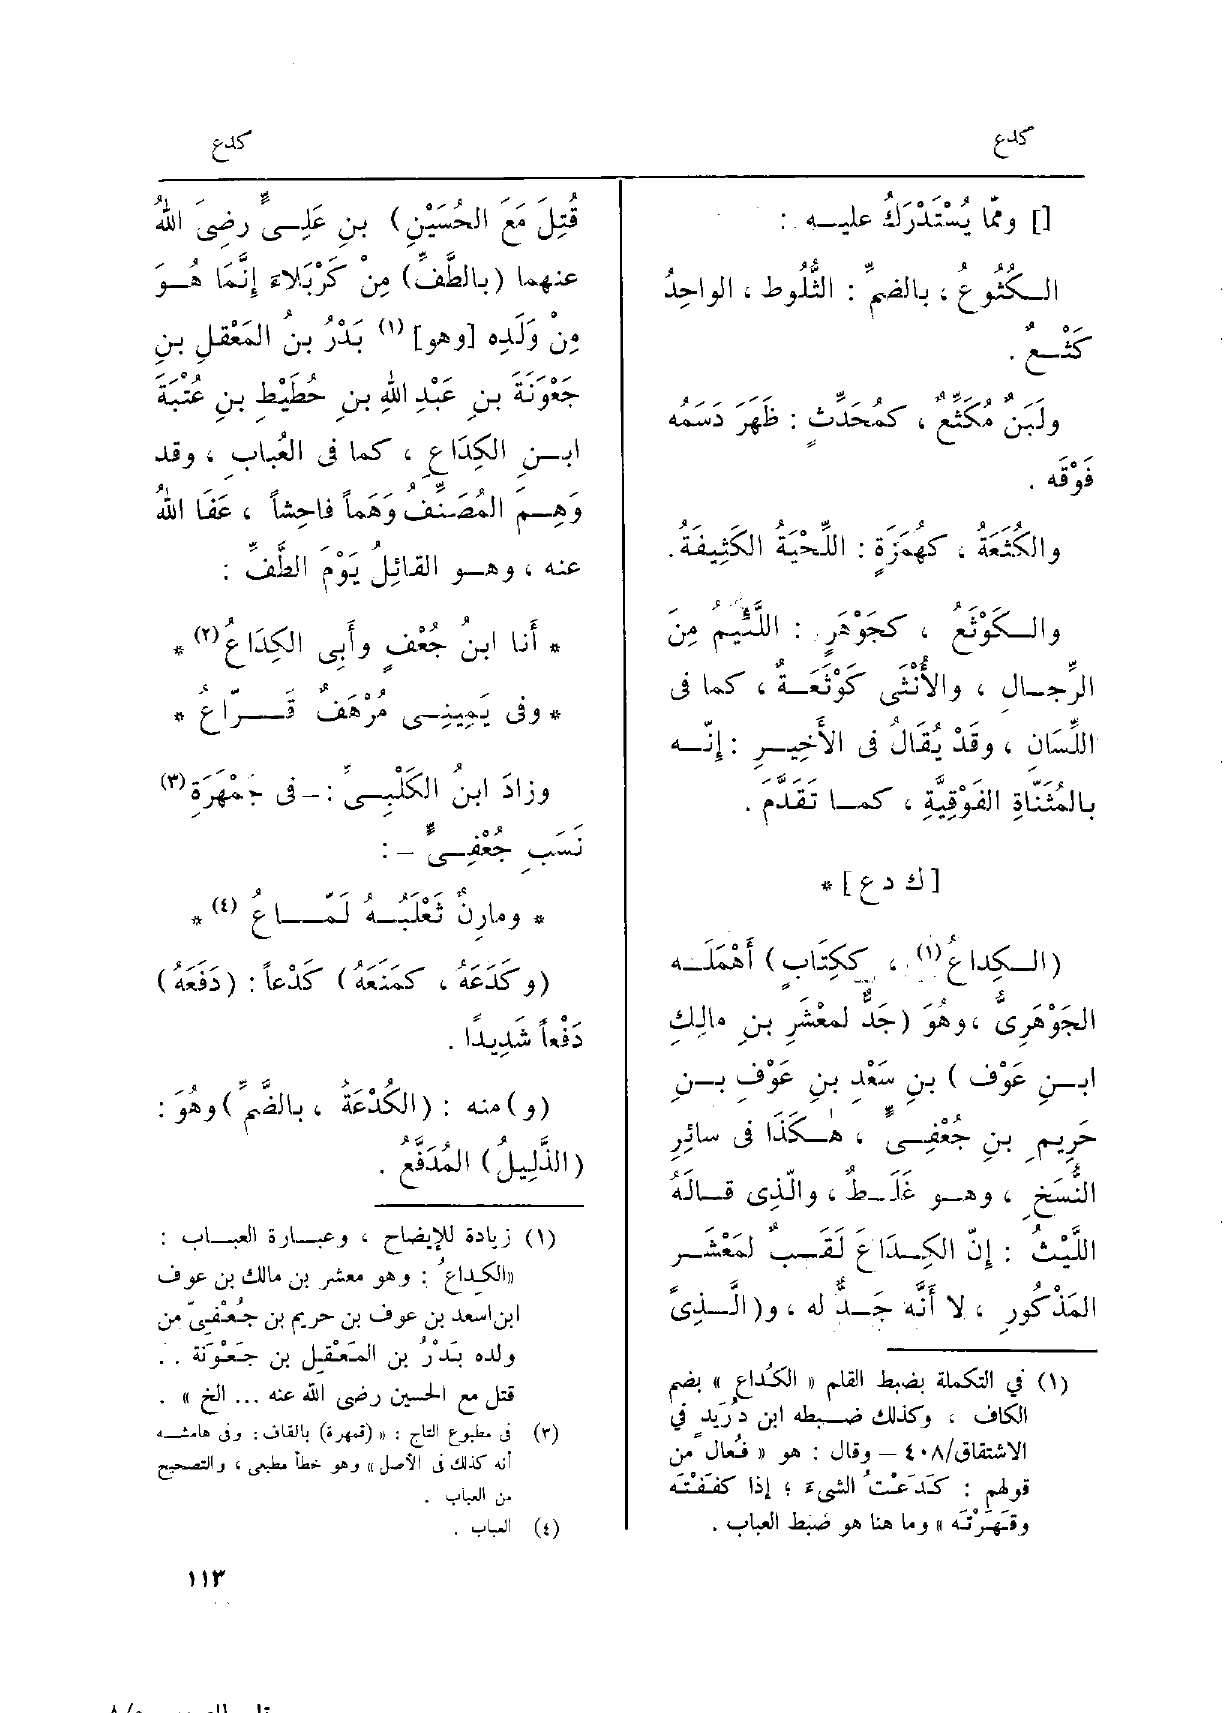 كدع
كدع
[] وممّا يُسْتَدْرَكُ عليــه :
الــكُثُوعُ ، بالضمِّ : الثُّلُوط ، الواحِدُ
كَثْــعٌ .
ولَبَنٌ مُكَثِّعٌ ، كمُحَدِّثٍ : ظَهَرَ دَسَمُه
فَوْقَه .
والكُثَعَةُ ، كهُمَزَةٍ : اللِّحْيَةُ الكَثِيفَةُ.
والــكَوْثَعُ ، كجَوْهَرٍ : اللَّئِيمُ مِنَ
الرِّجــالِ ، والأُنْثَى كَوْثَعَــةٌ ، كما فى
اللِّسَان ، وقَدْ يُقَالُ فى الأَخِيــرِ : إنّــه
بالمُثَنّاةِ الفَوْقِيَّةِ ، كمــا تَقَدَّمَ .
[ ك د ع ] *
(الــكِداعُ(١) ، ككِتَابٍ) أَهْمَلَــه
الجَوْهَرِىُّ ، وهُوَ (جَدٌّ لمَعْشَرِ بنِ مالِكِ
ابــنِ عَوْفِ ) بنِ سَعْدِ بنِ عَوْفِ بــنِ
حَرِيمِ بنِ جُعْفِــىٍّ ، هٰــكَذَا فى سائِرِ
النُّسَخِ ، وهــو غَلَــطٌ ، والّذِى قــالَهُ
اللَّيْثُ : إنّ الكِــدَاعَ لَقَــبٌ لمَعْشَــرٍ
المَذْكُورِ ، لا أَنَّه جَــدٌّ له ، و(الَّــذِى
(١) في التكملة بضبط القلم « الكُداع » بضم
الكاف ، وكذلك ضــبطه ابن دُرَيد في
الاشتقاق/٤٠٨ – وقال : هو « فُعال من
قولهم : كَدَعْتُ الشىء ؛ إذا كفَفْتَه
وقَهَرْتَه » وما هنا هو ضبط العباب .
قُتِلَ مَعَ الحُسَيْنِ) بنِ عَلِــىٍّ رضِىَ اللهُ
عنهما (بالطَّفِّ) مِنْ كَرْبَلاءَ إنَّمَا هُــوَ
مِنْ وَلَدِه [وهو] (١) بَدْرُ بنُ المَعْقلِ بنِ
جَعْوَنَةَ بنِ عَبْدِ اللهِ بنِ حُطَيْطِ بنِ عُتْبَةَ
ابــنِ الكِدَاعِ ، كما فى العُبابِ ، وقد
وَهِــمَ المُصَنِّفُ وَهَماً فاحِشاً ، عَفَا اللهُ
عنه ، وهــو القائِلُ يَوْمَ الطَّفِّ :
* أَنا ابنُ جُعْفٍ وأَبِى الكِدَاعُ(٢) *
* وفى يَمِينِــى مُرْهَفٌ قَــرّاعُ *
وزادَ ابنُ الكَلْبِــىِّ :– فى جَمْهَرَةِ(٣)
نَسَبِ جُعْفِــىٍّ – :
* ومارِنٌ ثَعْلَبُــهُ لَمّــاعُ (٤) *
(وكَدَعَهُ ، كمَنَعَهُ) كَدْعاً : (دَفَعَهُ)
دَفْعاً شَدِيدًا .
(و)منه : (الكُدْعَةُ ، بالضَّمِّ) وهُوَ :
(الذَّلِيلُ) المُدَفَّعُ .
(١) زيادة للإيضاح ، وعبــارة العبــاب :
«الكِداعُ : وهو معشر بن مالك بن عوف
ابن اسعد بن عوف بن حريم بن جُعْفِىّ من
ولده بَدْرُ بن المَعْقِل بن جَعْوَنة . .
قتل مع الحسين رضى الله عنه ... الخ » .
(٣) فى مطبوع التاج : « (قمهرة) بالقاف : وفى هامشــه
أنه كذلك فى الأصل » وهو خطأ مطبعى ، والتصحيح
من العباب .
(٤) العباب .
١١٣